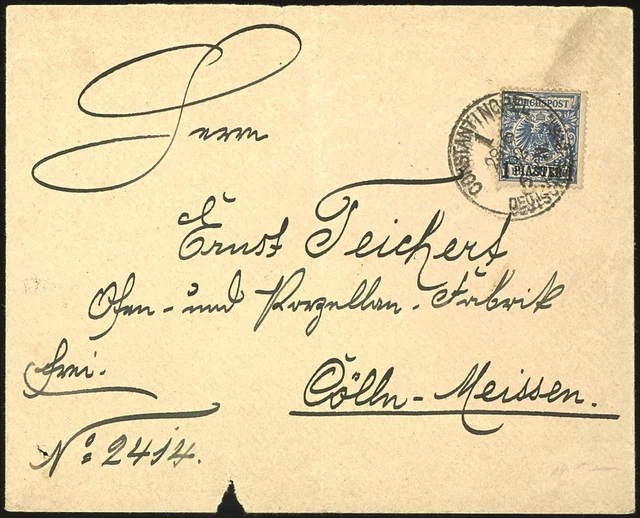 Herrn
REICHSPOST
1 PIASTER 1
CONSTANTINOPEL 1
Ernst Teichert
Ofen- und Porzellan-Fabrik
frei.
Cölln-Meissen.
No: 2414.